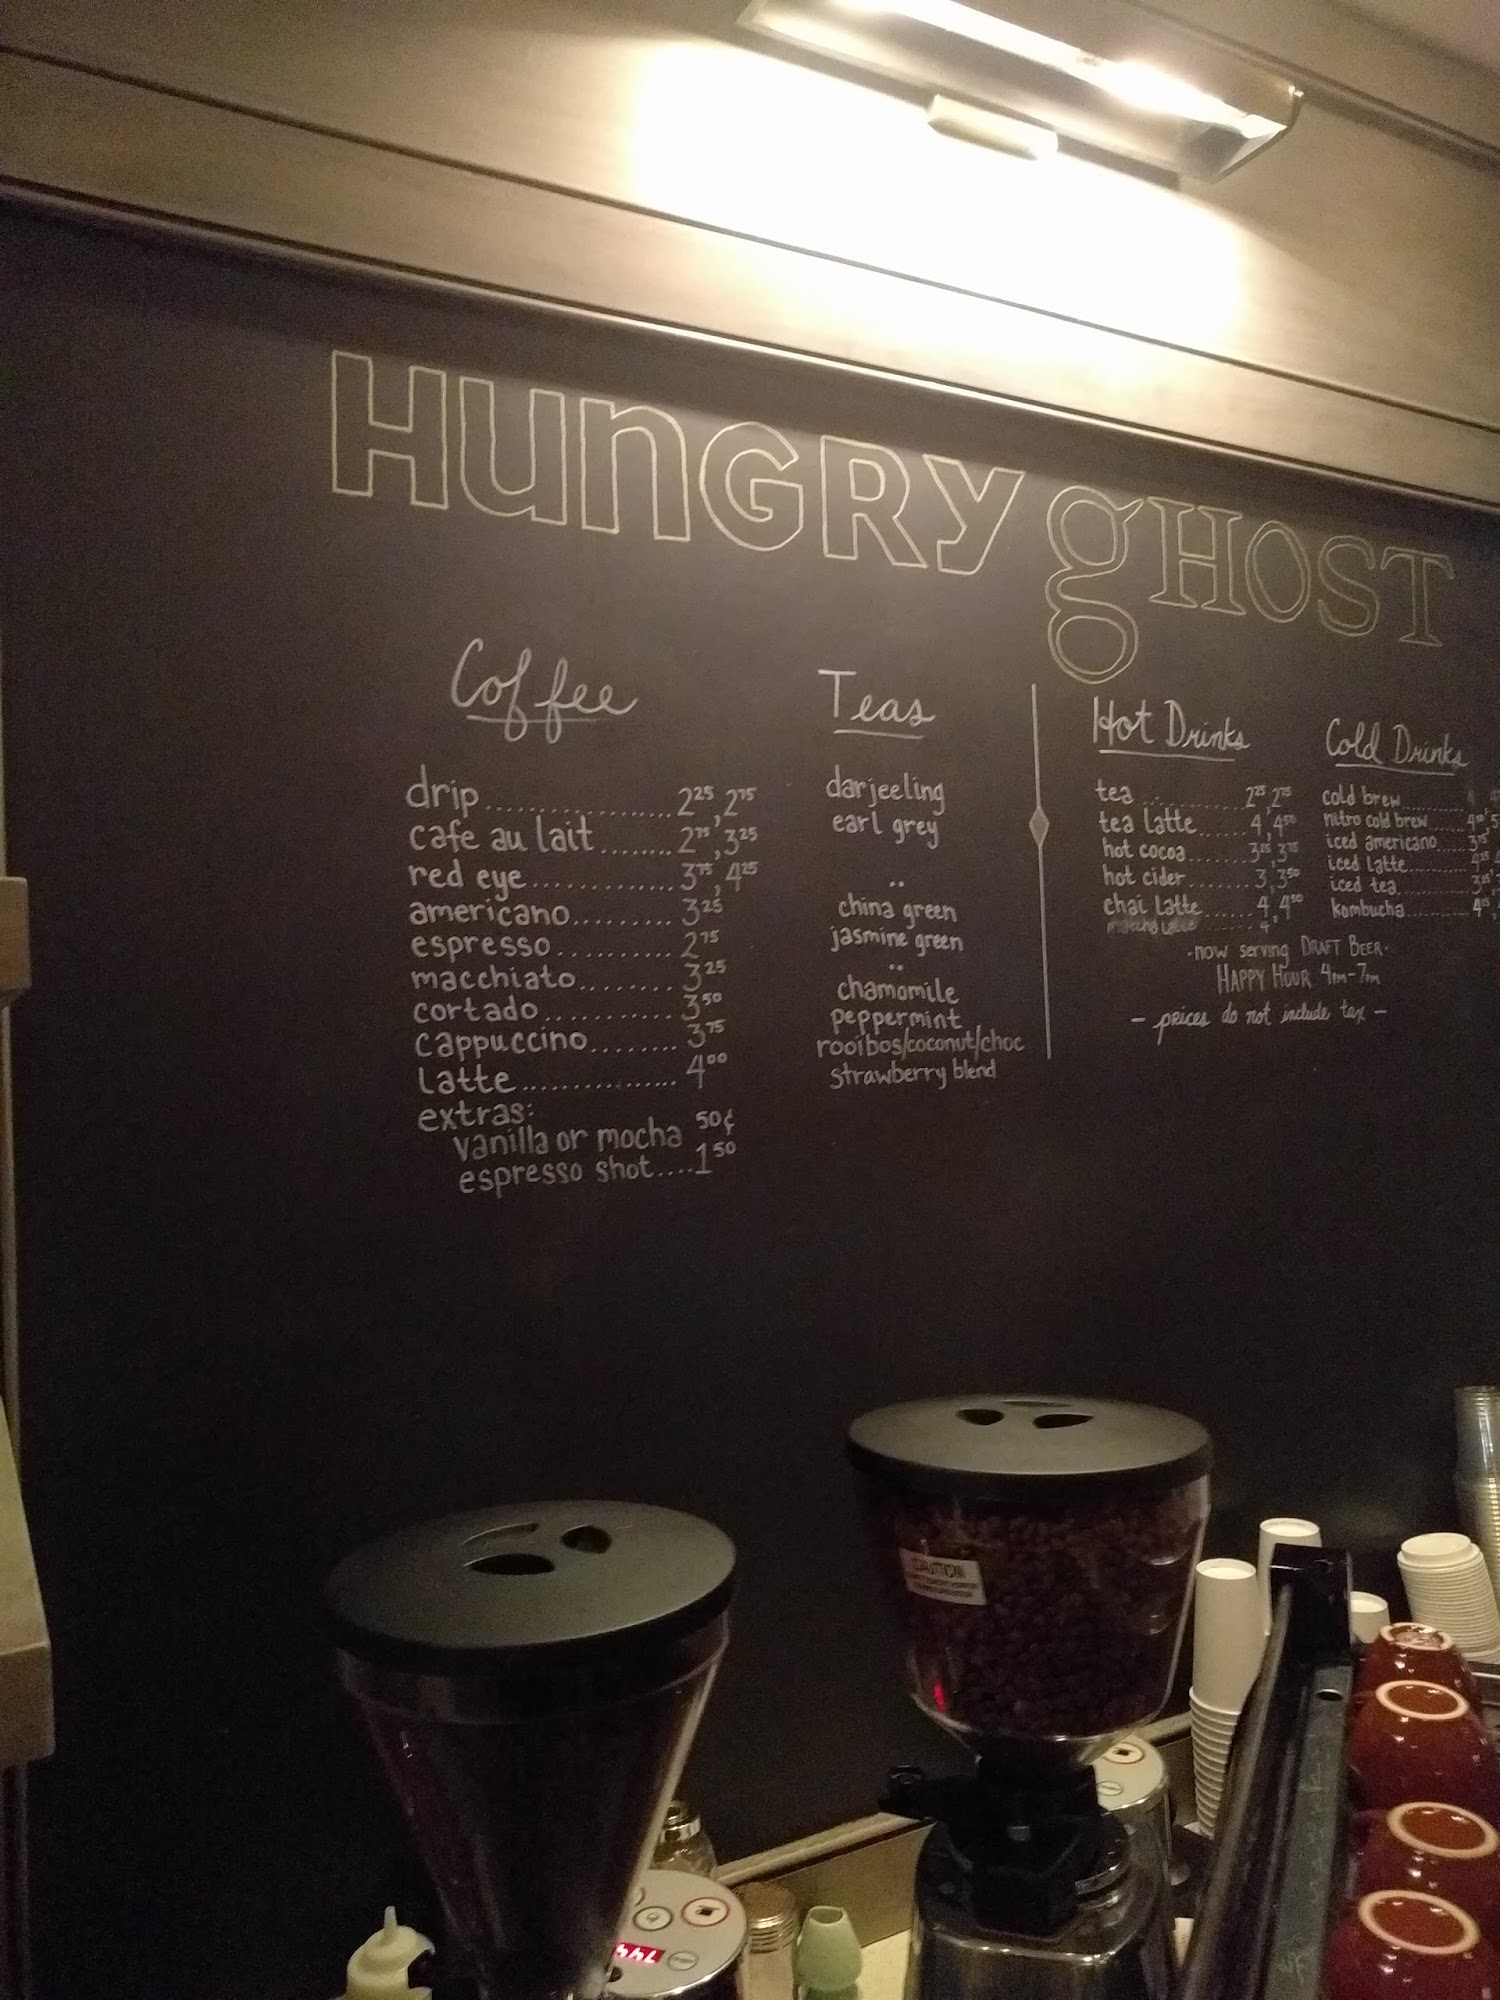 HUNGRY gHOST
Coffee
drip.................... 2 25, 2 75
cafe au lait........ 2 75, 3 25
red eye............. 3 75, 4 25
americano.......... 3 25
espresso........... 2 75
macchiato......... 3 25
cortado............ 3 50
cappuccino........ 3 75
latte................ 4 00
extras:
vanilla or mocha 50¢
espresso shot.... 1 50
Teas
darjeeling
earl grey
china green
jasmine green
chamomile
peppermint
rooibos/coconut/choc
strawberry blend
Hot Drinks
tea ............... 2 25, 2 75
tea latte...... 4, 4 50
hot cocoa........ 3 25, 3 75
hot cider........ 3, 3 50
chai latte...... 4, 4 50
Cold Drinks
cold brew
nitro cold brew
iced americano
iced latte
iced tea
kombucha
·now serving DRAFT BEER·
HAPPY HOUR 4pm-7pm
- prices do not include tax -
CAUTION